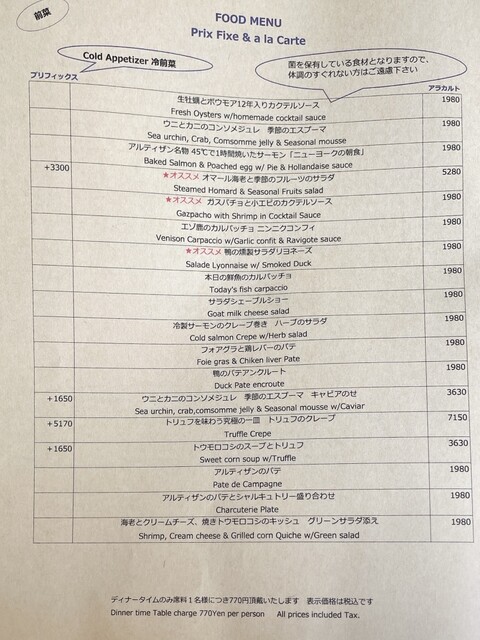 前菜
FOOD MENU
Prix Fixe & a la Carte
Cold Appetizer 冷前菜
菌を保有している食材となりますので、
体調のすぐれない方はご遠慮下さい
プリフィックス
アラカルト
生牡蠣とボウモア12年入りカクテルソース 1980
Fresh Oysters w/homemade cocktail sauce
ウニとカニのコンソメジュレ 季節のエスプーマ 1980
Sea urchin, Crab, Comsomme jelly & Seasonal mousse
アルティザン名物 45℃で1時間焼いたサーモン「ニューヨークの朝食」 1980
Baked Salmon & Poached egg w/ Pie & Hollandaise sauce
+3300 ★オススメ オマール海老と季節のフルーツのサラダ 5280
Steamed Homard & Seasonal Fruits salad
★オススメ ガスパチョと小エビのカクテルソース 1980
Gazpacho with Shrimp in Cocktail Sauce
エゾ鹿のカルパッチョ ニンニクコンフィ 1980
Venison Carpaccio w/Garlic confit & Ravigote sauce
★オススメ 鴨の燻製サラダリヨネーズ 1980
Salade Lyonnaise w/ Smoked Duck
本日の鮮魚のカルパッチョ 1980
Today's fish carpaccio
サラダシェーブルショー 1980
Goat milk cheese salad
冷製サーモンのクレープ巻き ハーブのサラダ 1980
Cold salmon Crepe w/Herb salad
フォアグラと鶏レバーのパテ 1980
Foie gras & Chiken liver Pate
鴨のパテアンクルート 1980
Duck Pate encroute
+1650 ウニとカニのコンソメジュレ 季節のエスプーマ キャビアのせ 3630
Sea urchin, crab,comsomme jelly & Seasonal mousse w/Caviar
+5170 トリュフを味わう究極の一皿 トリュフのクレープ 7150
Truffle Crepe
+1650 トウモロコシのスープとトリュフ 3630
Sweet corn soup w/Truffle
アルティザンのパテ 1980
Pate de Campagne
アルティザンのパテとシャルキュトリー盛り合わせ 1980
Charcuterie Plate
海老とクリームチーズ、焼きトウモロコシのキッシュ グリーンサラダ添え 1980
Shrimp, Cream cheese & Grilled corn Quiche w/Green salad
ディナータイムのみ席料1名様につき770円頂戴いたします 表示価格は税込です
Dinner time Table charge 770Yen per person All prices included Tax.